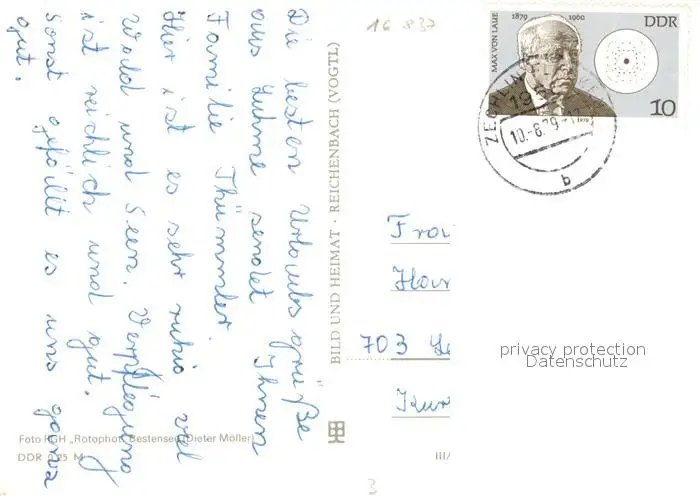 Die besten Urlaubsgrüße
aus Luhme sendet Ihnen
Familie Thümmler.
Hier ist es sehr ruhig viel
Wald und Seen. Verpflegung
ist reichlich und gut.
Sonst gefällt es uns ganz
gut.
BILD UND HEIMAT · REICHENBACH (VOGTL)
Foto PGH „Rotophot" Bestensee (Dieter Möller)
DDR 0,25 M
III/
16 837
MAX VON LAUE
1879 1960
DDR
10
1979
10.-8.79
b
Frau
703
privacy protection
Datenschutz
3